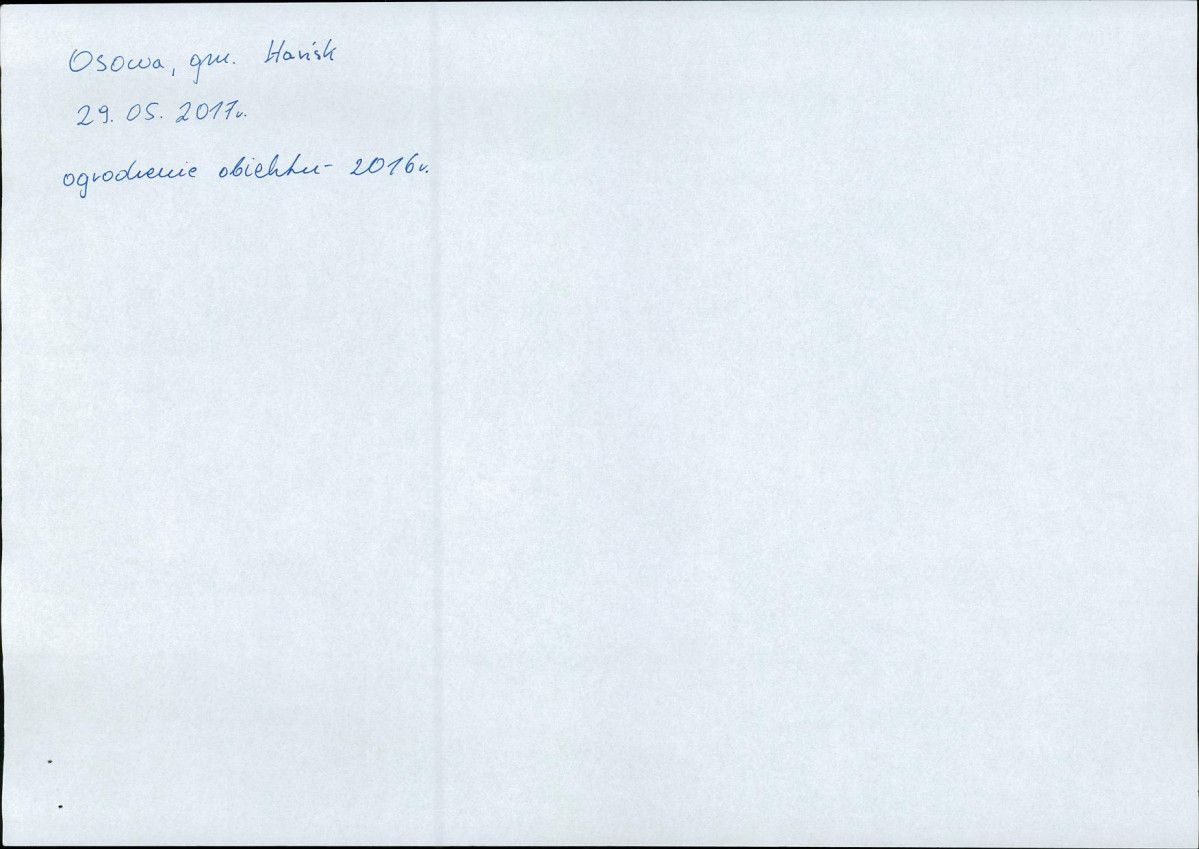 Osowa, gm. Hańsk
29. 05. 2017r.
ogrodzenie obiektu - 2016r.